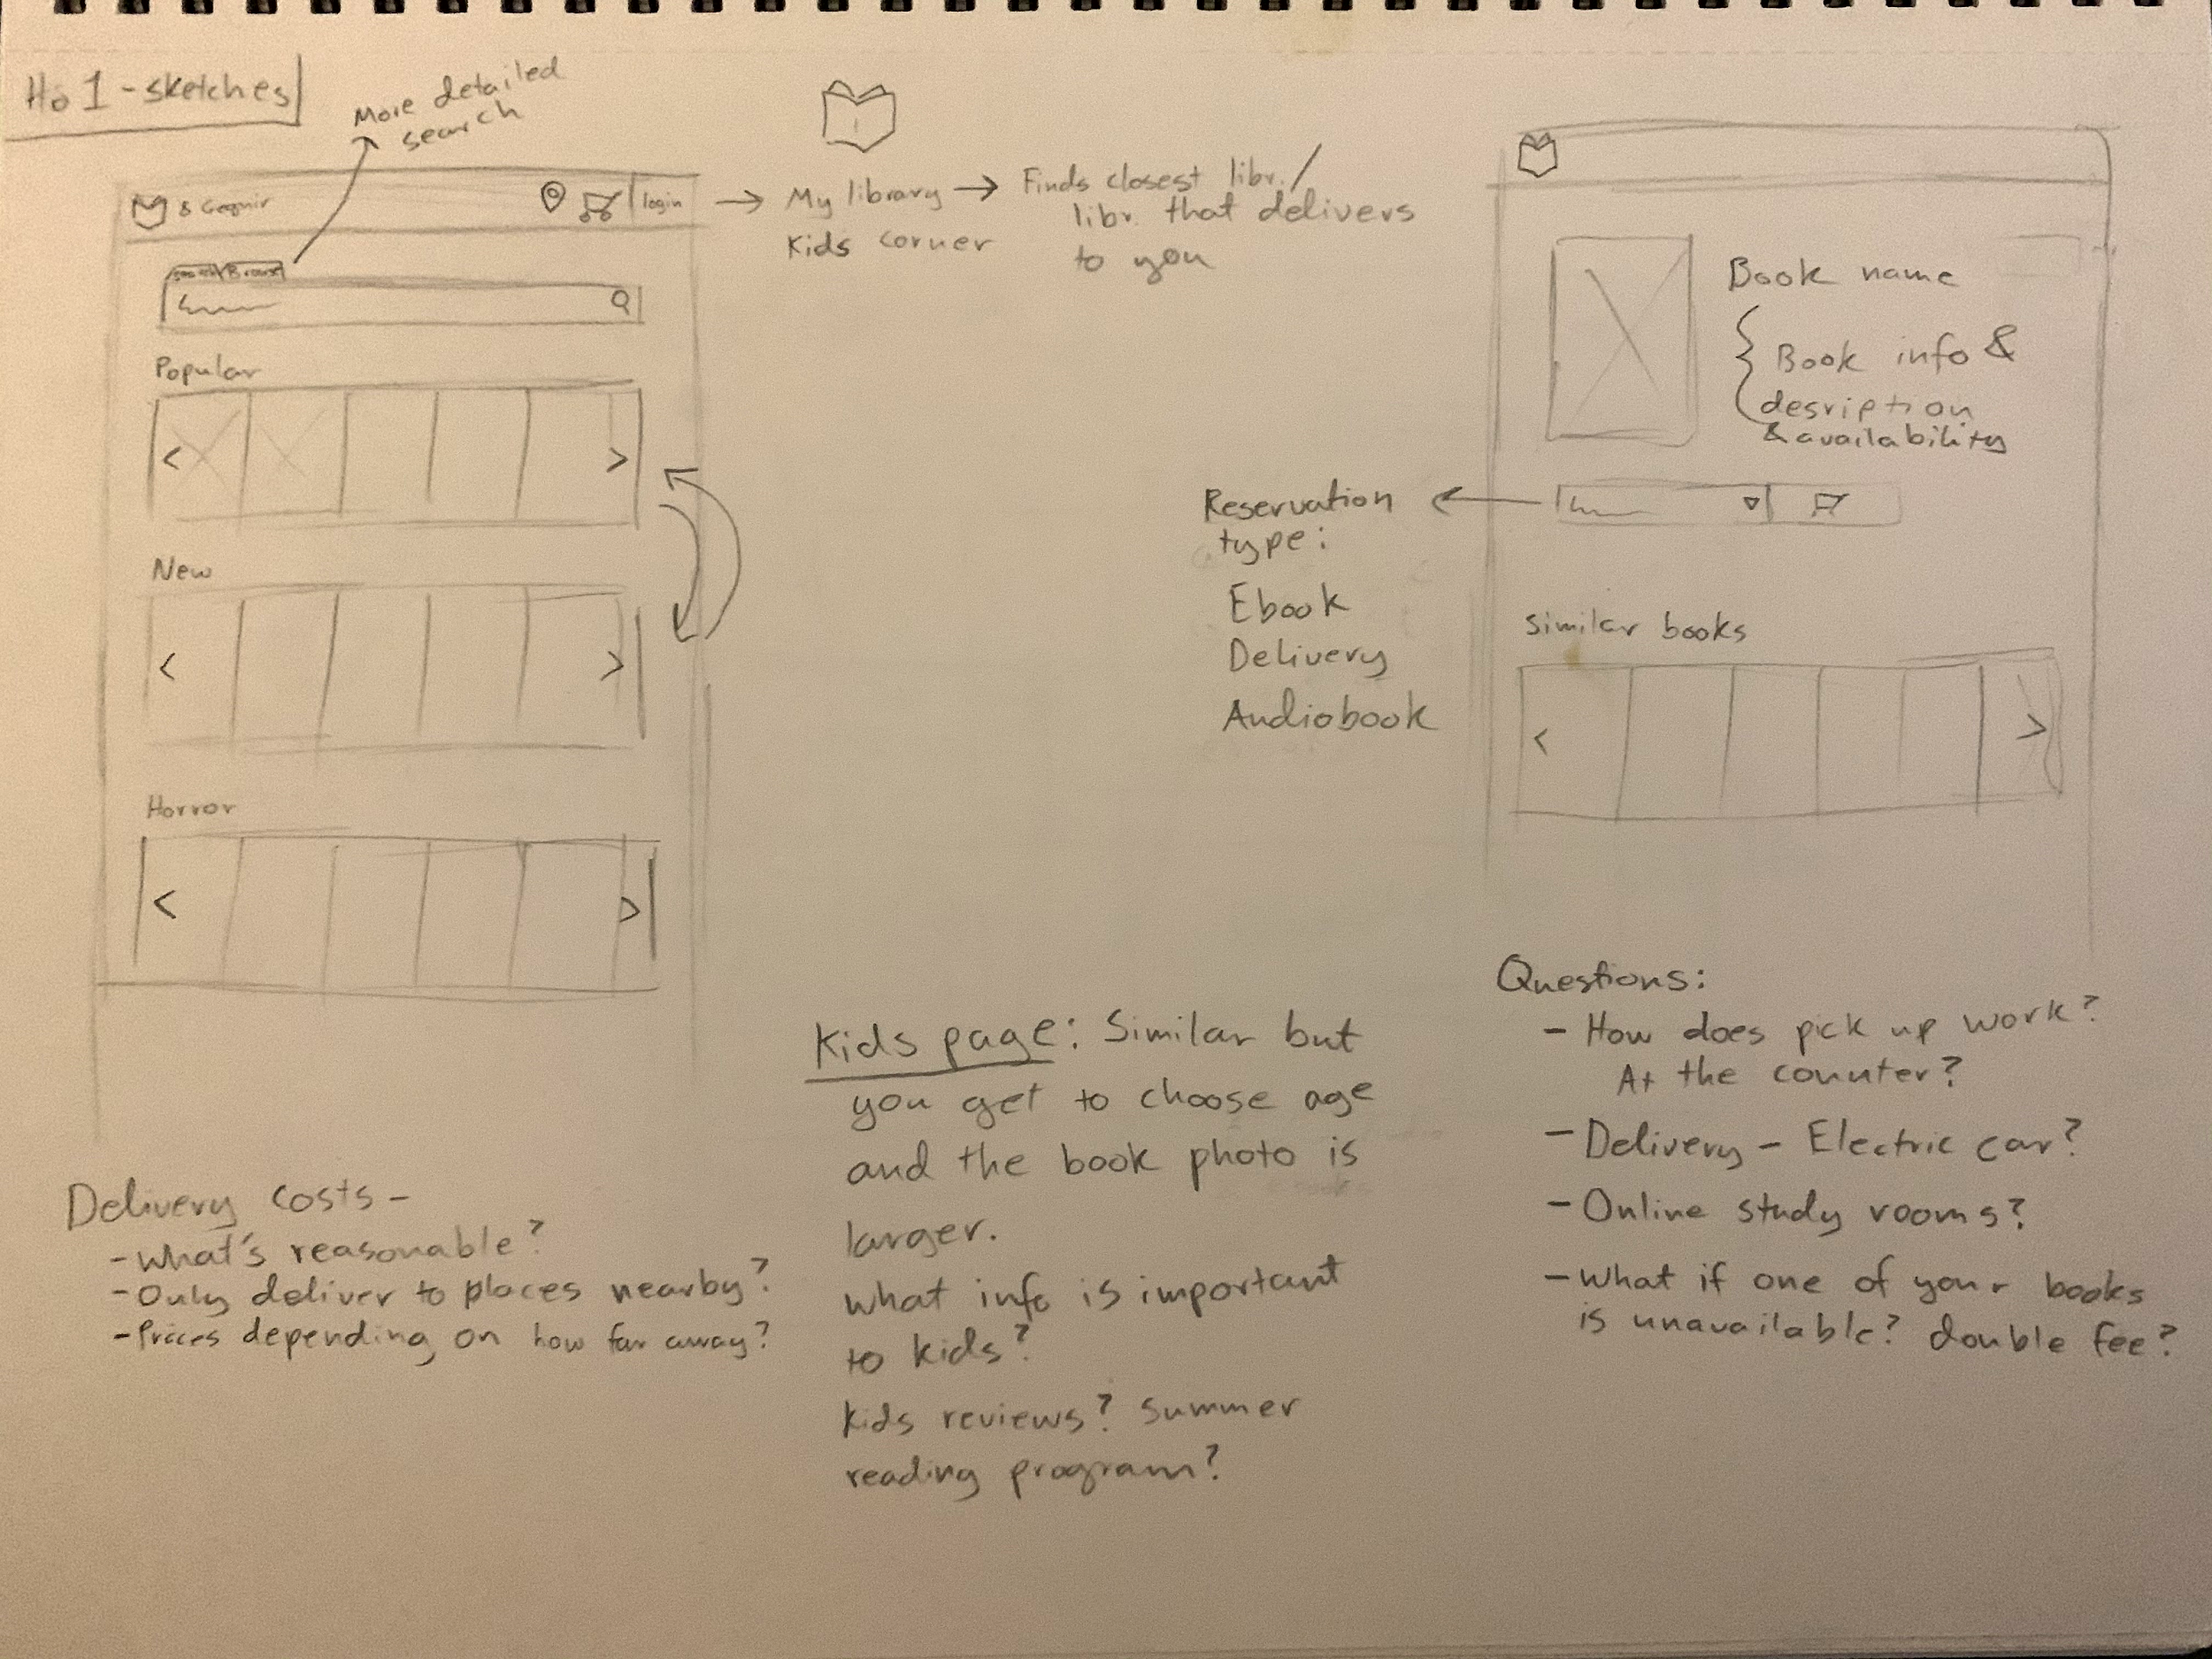 Ho 1 - sketches
More detailed
search
login
My library
Kids corner
Finds closest libr./
libr. that delivers
to you
Browse
Popular
New
Horror
Book name
Book info &
desription
& availability
Reservation
type:
Ebook
Delivery
Audiobook
Similar books
Delivery costs -
- What's reasonable?
- Only deliver to places nearby?
- Prices depending on how far away?
Kids page: Similar but
you get to choose age
and the book photo is
larger.
What info is important
to kids?
Kids reviews? Summer
reading program?
Questions:
- How does pick up work?
At the counter?
- Delivery - Electric car?
- Online study rooms?
- What if one of your books
is unavailable? double fee?